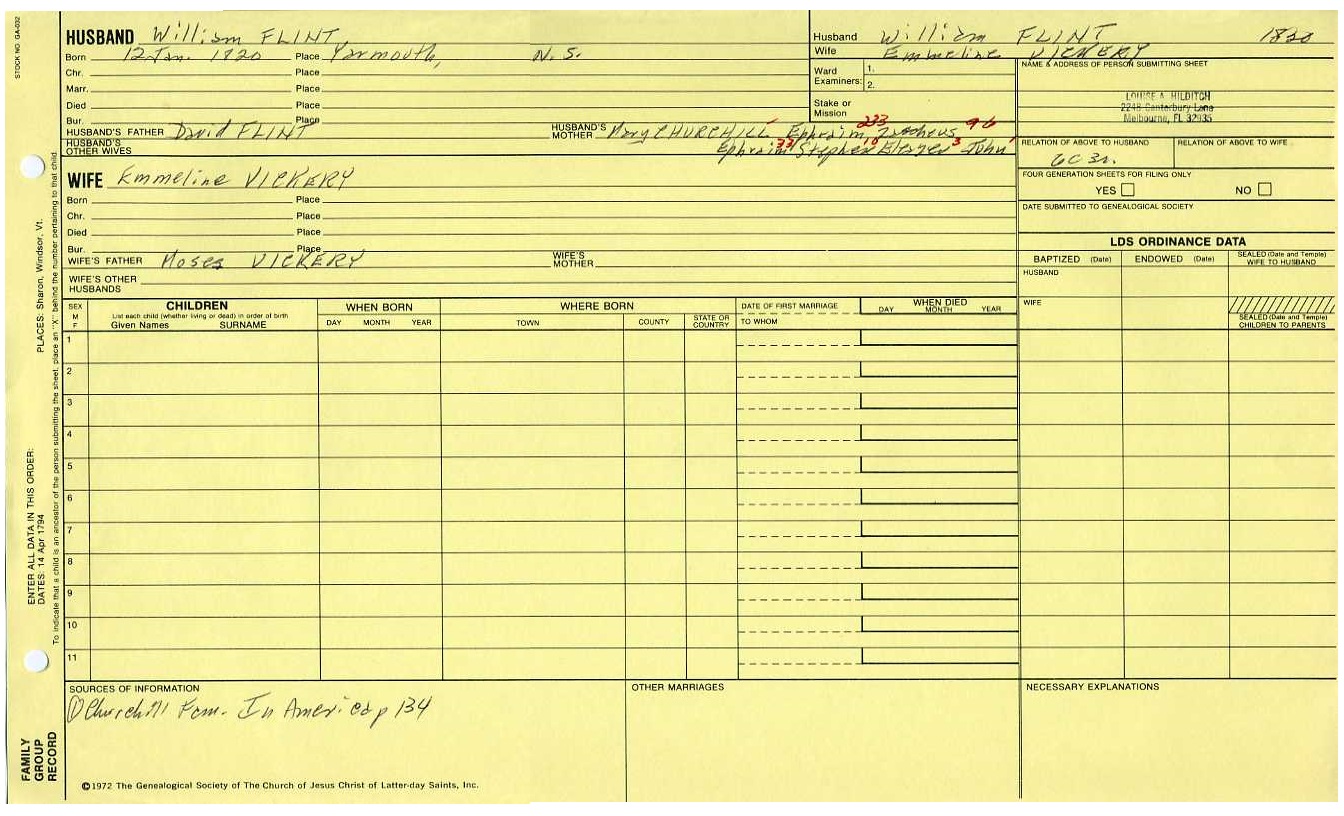 STOCK NO. GA-032
HUSBAND William FLINT
Born 12 Jan. 1820 Place Yarmouth, N.S.
Chr. Place
Marr. Place
Died Place
Bur. Place
HUSBAND'S FATHER David FLINT HUSBAND'S MOTHER Mary CHURCHILL Ephraim 233 96
HUSBAND'S OTHER WIVES Ephraim 33 Stephen 10 Eleazer 3 John 1
Husband William FLINT 1820
Wife Emmeline VICKERY
Ward Examiners: 1.
2.
Stake or Mission
NAME & ADDRESS OF PERSON SUBMITTING SHEET
LOUISE A. HILDITCH
2248 Canterbury Lane
Melbourne, FL 32935
RELATION OF ABOVE TO HUSBAND RELATION OF ABOVE TO WIFE
6C 3r.
FOUR GENERATION SHEETS FOR FILING ONLY
YES NO
DATE SUBMITTED TO GENEALOGICAL SOCIETY
WIFE Emmeline VICKERY
Born Place
Chr. Place
Died Place
Bur. Place
WIFE'S FATHER Moses VICKERY WIFE'S MOTHER
WIFE'S OTHER HUSBANDS
LDS ORDINANCE DATA
BAPTIZED (Date) ENDOWED (Date) SEALED (Date and Temple) WIFE TO HUSBAND
HUSBAND
WIFE
SEALED (Date and Temple) CHILDREN TO PARENTS
SEX M F
CHILDREN
List each child (whether living or dead) in order of birth
Given Names SURNAME
WHEN BORN
DAY MONTH YEAR
WHERE BORN
TOWN COUNTY STATE OR COUNTRY
DATE OF FIRST MARRIAGE
TO WHOM
WHEN DIED
DAY MONTH YEAR
1
2
3
4
5
6
7
8
9
10
11
SOURCES OF INFORMATION
① Churchill Fam. In America p 134
OTHER MARRIAGES
NECESSARY EXPLANATIONS
©1972 The Genealogical Society of The Church of Jesus Christ of Latter-day Saints, Inc.
FAMILY GROUP RECORD
ENTER ALL DATA IN THIS ORDER:
DATES: 14 Apr 1794 PLACES: Sharon, Windsor, Vt.
To indicate that a child is an ancestor of the person submitting the sheet, place an "X" behind the number pertaining to that child.